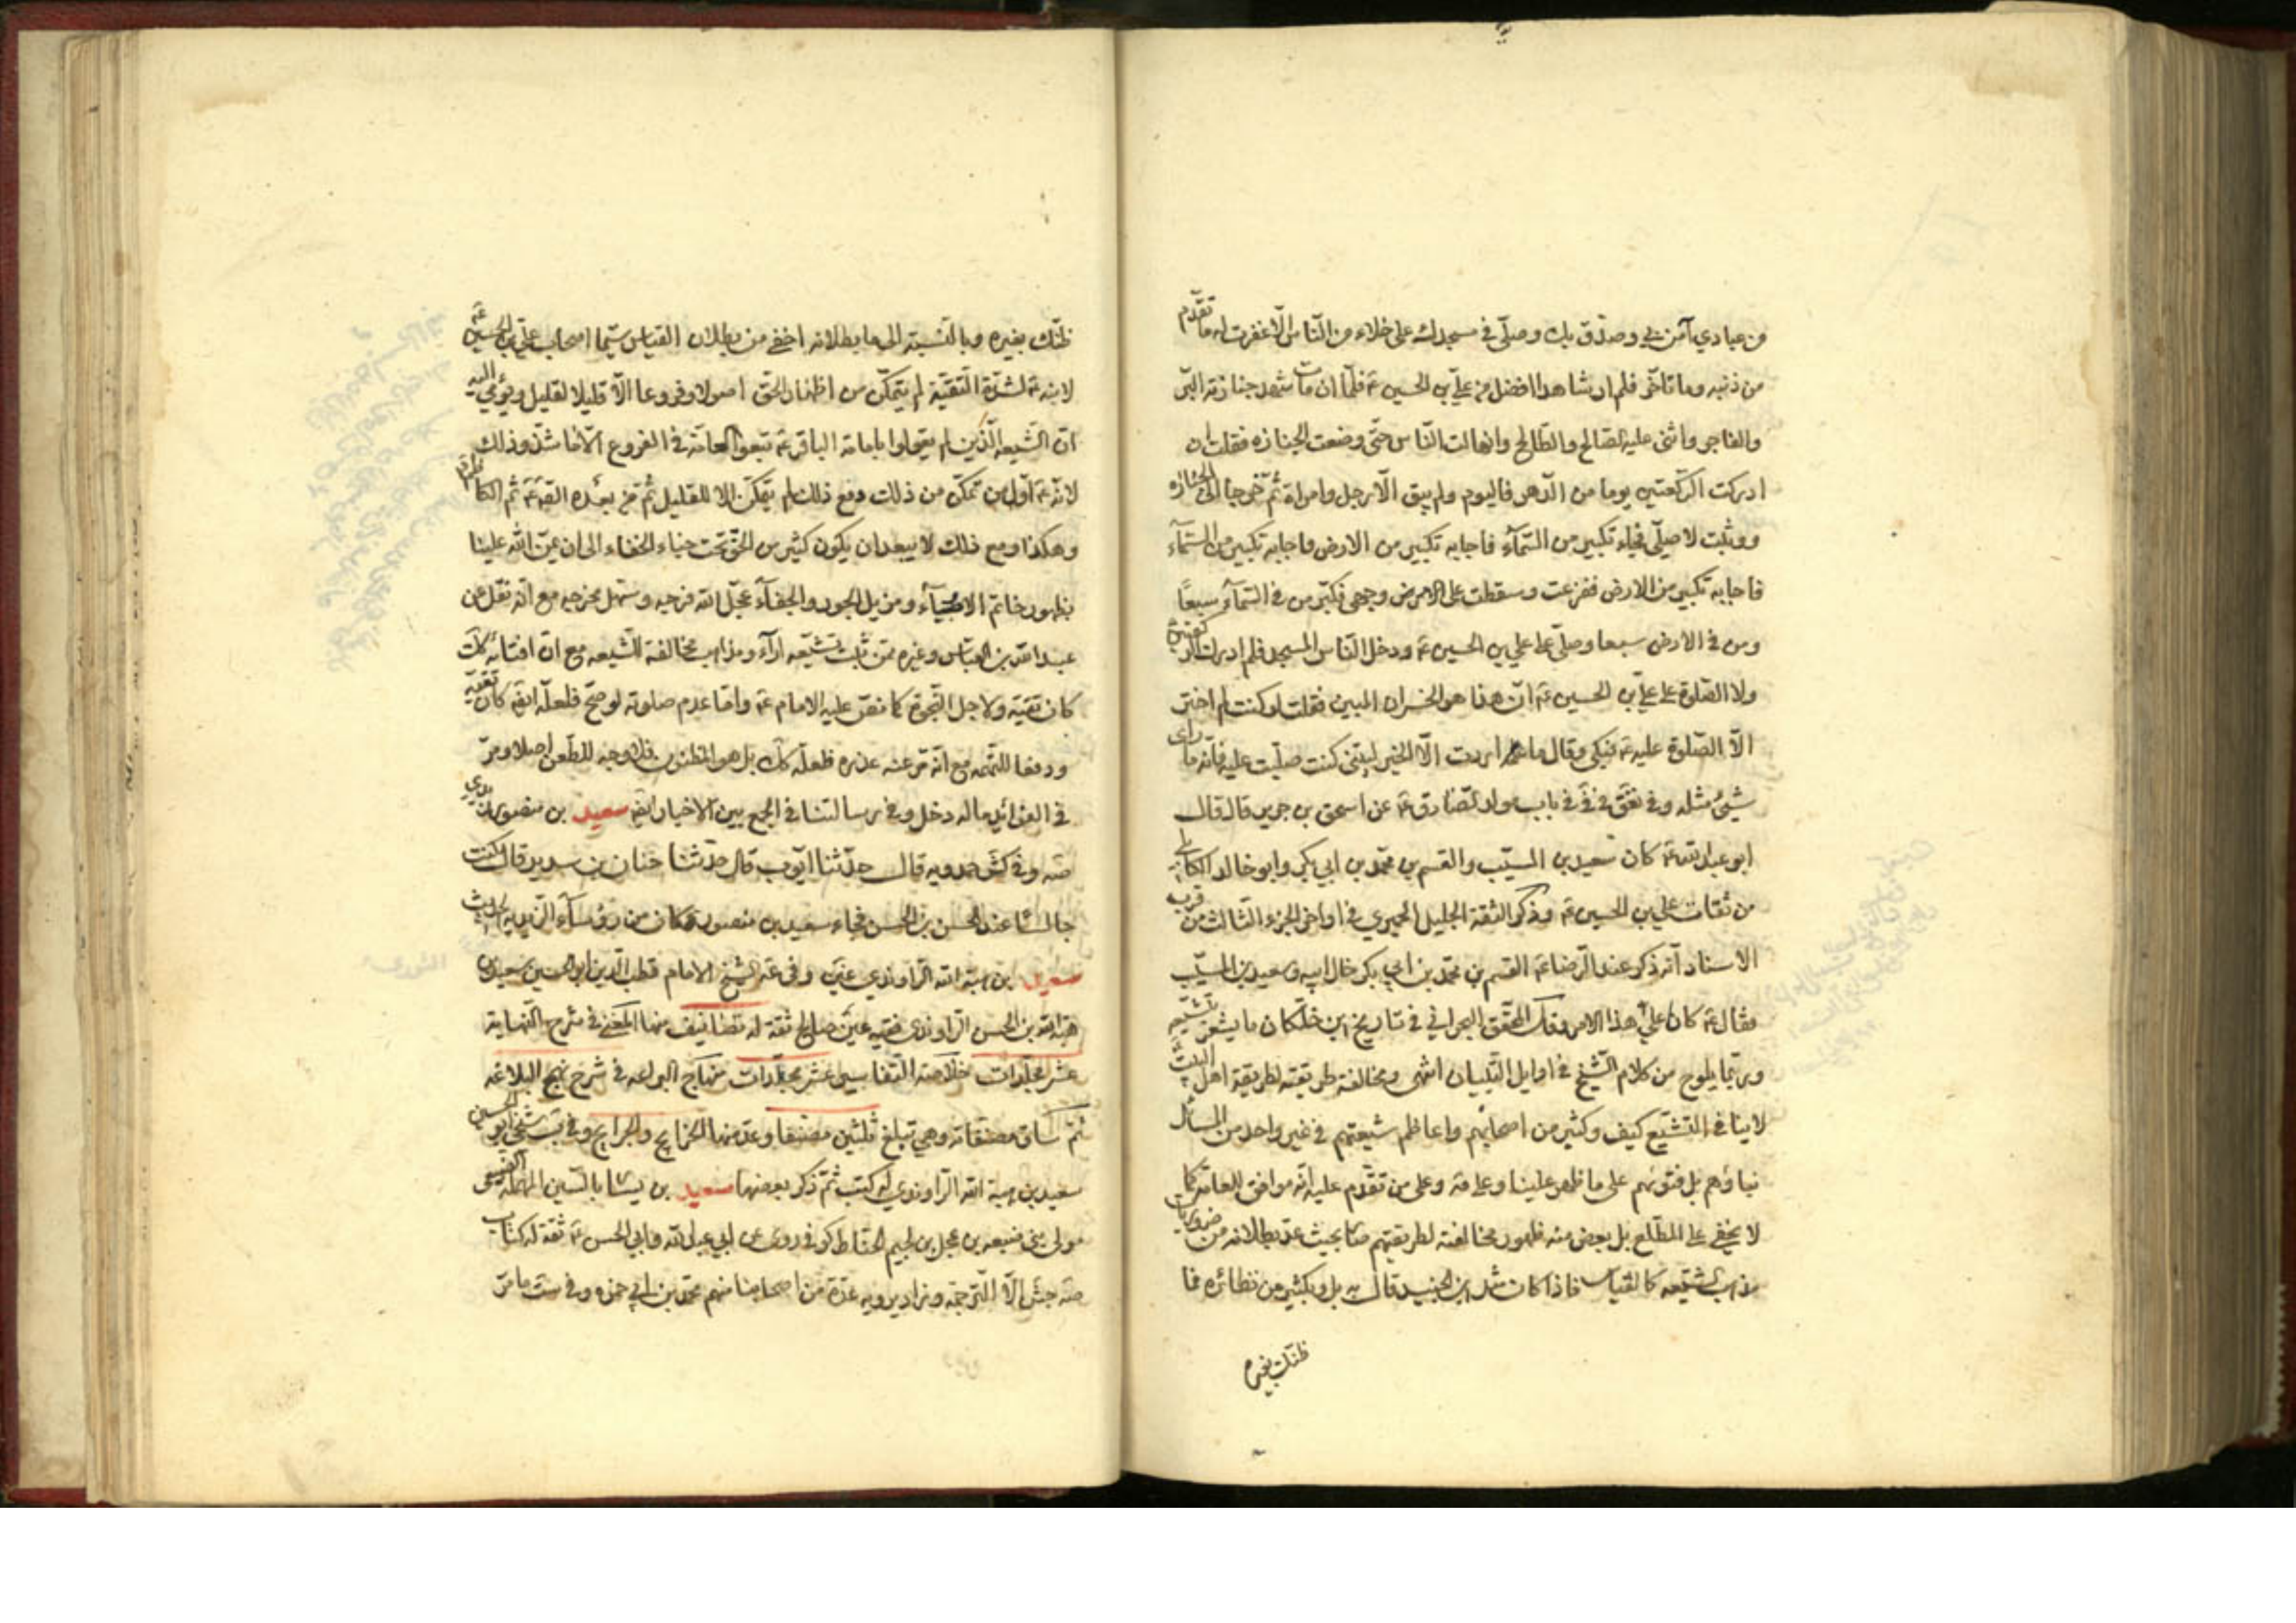 من عبادي آمن بي وصدّق بك وصلّى في مسجدك على خلاء من النّاس الّا غفرت له ما تقدّم
من ذنبه وما تأخّر فلم ار شاهدا افضل من عليّ بن الحسين عَ فلمّا ان مات شهد جنازته البّر
والفاجر واثنى عليه الصّالح والطّالح وانهالت النّاس حتّى وضعت الجنازه فقلت ان
ادركت الركعتين يوما من الدّهر فاليوم ولم يبق الّا رجل وامراة ثمّ خرجا الى الجنازه
ووثبت لاصلّي فجاء تكبير من السّمآء فاجابه تكبير من الارض فاجابه تكبير من السّمآء
فاجابه تكبير من الارض ففزعت وسقطت على وجهي فكبّر من في السّمآء سبعًا
ومن في الارض سبعا وصلّى على علي بن الحسين عَ ودخل النّاس المسجد فلم ادرك الركعتين
ولا الصّلوة على عليّ بن الحسين عَ انّ هذا هو الخسران المبين فقلت لو كنت لم اختر
الّا الصّلوة عليه عَ فبكى وقال ما اردت الّا الخير ليتني كنت صلّيت عليه فانّه ما راى
شئ مثله وفي تعق في في باب مولد الصّادق عَ عن اسحق بن جرير قال قال
ابو عبد الله عَ كان سعيد بن المسيّب والقسم بن محمّد بن ابي بكر وابو خالد الكابلي
من ثقات علي بن الحسين عَ وذكر الثقة الجليل الحميري في اواخر الجزء الثّالث من قرب
الاسناد انّه ذكر عند الرّضا عَ القسم بن محمّد بن ابي بكر خال ابيه وسعيد بن المسيّب
فقال عَ كانا على هذا الامر وقال المحقّق البحراني في تاريخ ابن خلّكان ما يشعر بتشيّعه
وربّما يلوح من كلام الشّيخ في اوايل التّبيان انتهى ومخالفة طريقته لطريقة اهل البيت
لا ينافي التشيّع كيف وكثير من اصحابهم واعاظم شيعتهم في غير واحد من المسائل
بناؤهم بل فتوٰهم على ما ظهر علينا وعلى من تقدّم عليه انّه موافق للعامّة كما
لا يخفى على المطّلع بل بعض منه ظهور مخالفته لطريقتهم صار بحيث عدّ بطلانه من ضروريات
مذهب الشّيعه كالقياس فاذا كان مثل ابن الجنيد قال به بل وبكثير من نظائره فما
ظنّك بغيره
ظنّك بغيره وبالنّسبة الى ما بطلانه اخفى من بطلان القياس سيّما اصحاب عليّ بن الحسين عَ
لانّه عَ لشدّة التّقيّة لم يتمكّن من اظهار الحقّ اصولا وفروعا الّا قليلا لقليل ويؤمي اليه
انّ الشّيعه الّذين لم يقولوا بامامة الباقر عَ تبعوا العامّة في الفروع الّا ما شذّ وذلك
لانّه عَ اوّل من تمكّن من ذلك ومع ذلك لم يتمكّن الا للقليل ثمّ من بعده الصّ عَ ثمّ الكاظم عَ
وهكذا ومع ذلك لا يبعد ان يكون كثير من الحقّ تحت خباء الخفاء الى ان يمنّ الله علينا
بظهور خاتم الاوصيآء ومزيل الجور والجفآء عجّل الله فرجه وسهّل مخرجه مع انّه نقل عن
عبد الله بن العبّاس وغيره ممّن ثبت تشيّعه آراء ومذاهب مخالفة للشّيعه مع انّ افتائه كك
كان تقيّة ولاجل النّجوة كما نصّ عليه الامام عَ وامّا عدم صلوته لو صحّ فلعلّه ايضَ كان تقيّة
ودفعا للتّهمه مع انّه مرّ عنه عذره فلعلّه كك بل هو المظنون فلا وجه للطّعن اصلا ومرّ
في الفوائد ما له دخل وفي رسالتنا في الجمع بين الاخبار ايضَ سعيد بن منصور زيدي
صَه وفي كشَ حمدويه قال حدّثنا ايّوب قال حدّثنا حنان بن سدير قال كنت
جالسًا عند الحسن بن الحسن فجاء سعيد بن منصور وكان من رؤسآء الزّيديه الحديث
سعيد بن هبة الله الرّاوندي غير وفي عه الشّيخ الامام قطب الدّين ابو الحسين سعيد بن
هبة الله بن الحسن الرّاوندي فقيه عين صالح ثقة له تصانيف منها المغني في شرح النّهاية
عشر مجلّدات خلاصة التّفاسير عشر مجلّدات منهاج البراعه في شرح نهج البلاغه
ثمّ ساق مصنّفاته وهي تبلغ ثلثين مصنّفا وعدّ منها الخرايج والجرايح وفي ب شيخي ابو الحسين
سعيد بن هبة الله الرّاوندي له كتب ثمّ ذكر بعضها سعيد بن يسار بالسّين المهملة الضّبيعى
مولى بني ضبيعه بن عجل بن لجيم الحنّاط كوفي روى عن ابي عبد الله وابي الحسن عَ ثقة له كتاب
صَه جشَ الّا التّرجمه وزاد يرويه عدّة من اصحابنا منهم محمّد بن ابي حمزه وفي ست ما مرّ